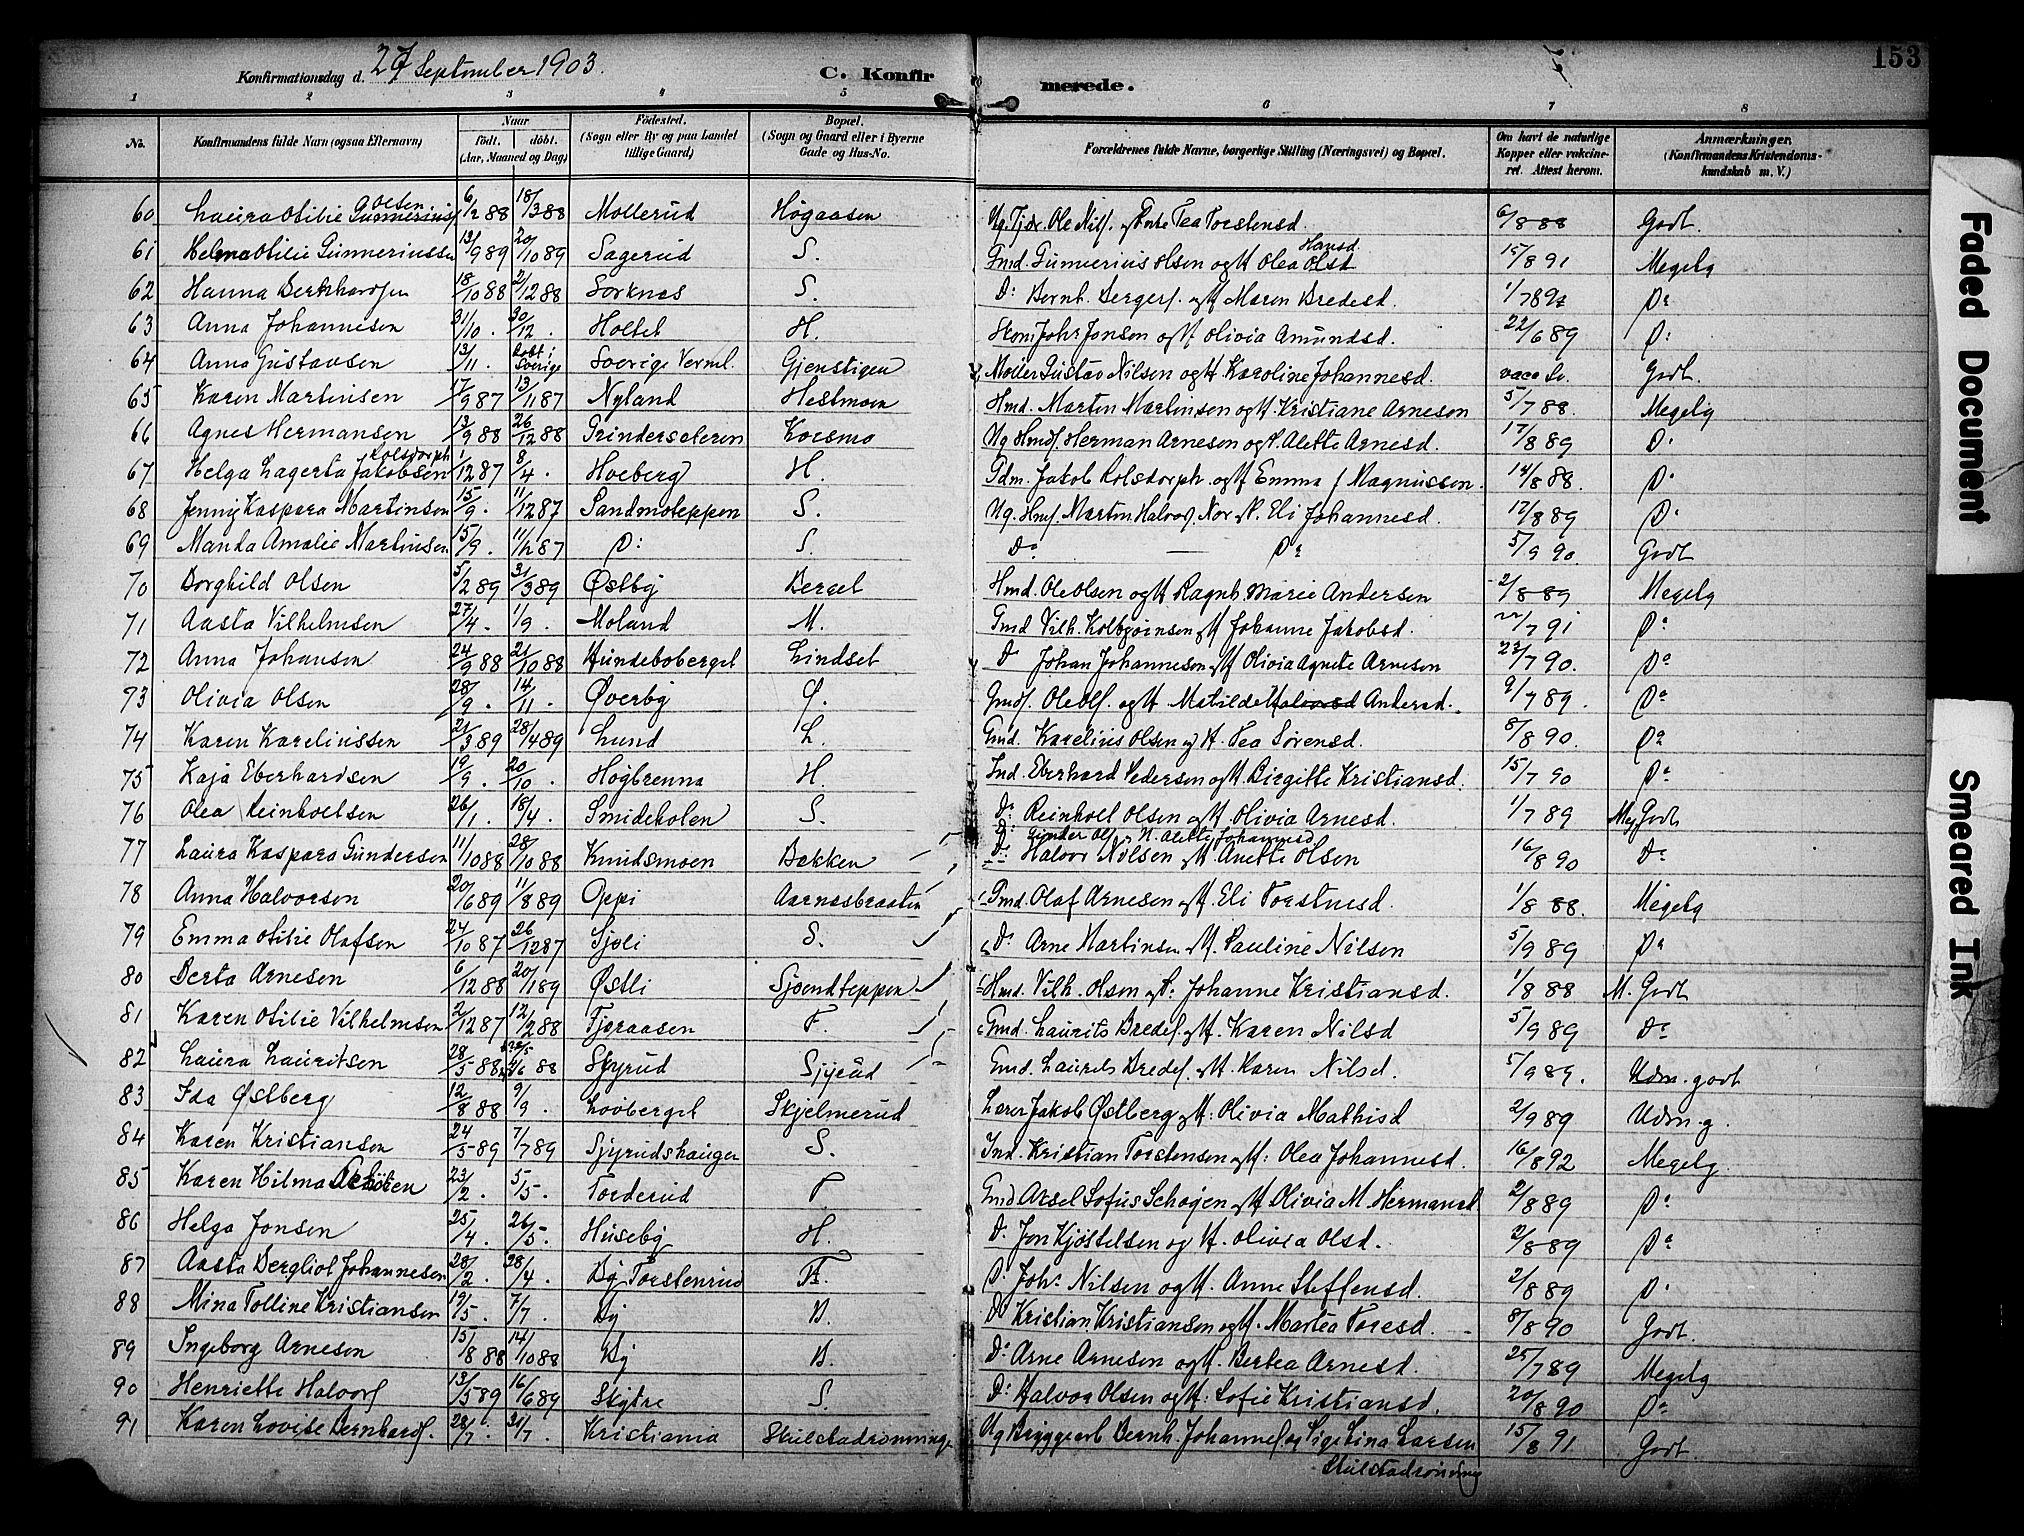 153
Konfirmationsdag d. 27 September 1903. C. Konfirmerede.
1 2 3 4 5 6 7 8
No. Konfirmandens fulde Navn (ogsaa Efternavn) Naar født. døbt. (Aar, Maaned og Dag) Fødested. (Sogn eller By og paa Landet tillige Gaard) Bopæl. (Sogn og Gaard eller i Byerne Gade og Hus-No. Forældrenes fulde Navne, borgerlige Stilling (Næringsvei) og Bopæl. Om havt de naturlige Kopper eller vakcineret. Attest herom. Anmærkninger. (Konfirmandens Kristendomskundskab m. V.)
60 Laura Otilie Olsen 6/2 88 18/3 88 Mollerud Høgaasen Ole Nils. Tea Torstensd. 6/8 88 Godt.
61 Helma Otilie Gunneriussen 13/9 89 20/10 89 Sagerud S. Gmd. Gunnerius Olsen og H Olea Hansd 15/8 91 Megetg
62 Hanna Bernhardsen 18/10 88 2/12 88 Sorknes S. Do Bernh. Bergers. og H Maren Bredesd. Do
63 Anna Johannesen 31/10 . 30/12 . Holtet H. Joh: Jonsen og H Olivia Amundsd. 22/6 89 Do
64 Anna Gustavsen 13/11 . Døbt i Sverige Sverige Verml. Gjenstigen Møller Gustav Nilsen og H Karoline Johannesd. Godt.
65 Karen Martinsen 17/9 87 13/11 87 Nyland Hestmoen Hmd. Marten Martinsen og H Kristiane Arnesen 5/7 88. Megetg
66 Agnes Hermansen 13/9 88 26/12 88 Grindersæteren Koesmo Ug Hmds. Herman Arnesen og P. Alette Arnesd. 17/8 89 Do
67 Helga Lagerta Jakobsen Kolsdorph 1/12 87 8/4 . Hoeberg H. Gdm. Jakob Kolsdorph. og H Emma f Magnussen. 14/8 88. Do
68 Jenny Kaspara Martinsen 15/9 . 11/12 87 Sandmoteppen S. Ug. Hms. Martin Halvors. Nor P. Eli Johannesd. 17/8 89 Do
69 Manda Amalie Martinsen 15/9 . 11/12 87 Do S. Do — Do 5/9 90. Godt
70 Borghild Olsen 5/2 89 31/3 89 Østby Berget Hmd. Ole Olsen og H Ragnh. Marie Andersen 2/8 89 Megetg
71 Aasta Vilhelmsen 27/4 . 1/9 . Moland M. Gmd Vilh. Kolbjørnsen H Johanne Jakobsd. 22/7 91 Do
72 Anna Johansen 24/9 88 21/10 88 Hundeboberget Lindset Do Johan Johannesen H Olivia Agnete Arnesen 23/7 90. Do
73 Olivia Olsen 28/9 . 14/11 . Øverby Ø. Gmds. Ole Ols. og H Matilde Andersd. 9/7 89. Do
74 Karen Kareliussen 21/3 89 28/4 89 Lund L. Gmd. Karelius Olsen og H. Tea Sørensd. 8/8 90. Do
75 Kaja Eberhardsen 19/9 . 20/10 . Høgbrenna H. Ind. Eberhard Pedersen og H Birgitte Kristiansd. 15/7 90 Do
76 Olea Reinholtsen 26/1 . 18/4 . Smidekolen S. Do Reinholt Olsen og H Olivia Arnesd. 1/7 89 Meg Godt
77 Laura Kaspara Gundersen 11/10 88 28/10 88 Knudsmoen Bakken Do Gunder Ols. H. Alette Johannesd Do Halvor Nilsen H. Anette Olsen 16/8 90 Do
78 Anna Halvorsen 20/6 89 11/8 89 Oppi Aarnesbraaten Gmd. Olaf Arnesen H. Eli Torstnesd. 1/8 88. Megetg
79 Emma Otilie Olafsen 24/10 87 26/12 87 Sjøli S. Do Arne Martinsen H. Pauline Nilsen 5/9 89 Do
80 Berta Arnesen 6/12 88 20/1 89 Østli Sjøendteppen Hmd. Vilh. Olsen Johanne Kristiansd. 1/8 88 M. Godt
81 Karen Otilie Vilhelmsen 2/12 87 12/2 88 Fjøraasen F. Gmd. Laurits Bredes. H. Karen Nilsd 5/9 89 Do
82 Laura Lauritsen 28/5 88 88 Sjyrud Sjyrud Gmd. Laurits Bredes. H. Karen Nilsd. 5/9 89. Udm. godt
83 Ida Østberg 12/8 88 9/9 . Lovberget Skjelmerud Lærer Jakob Østberg H: Olivia Mathisd 2/9 89 Udm. g.
84 Karen Kristiansen 24/5 89 7/7 89 Sjyrudshaugen S. Ind. Kristian Torstensen H: Olea Johannesd. 16/8 92 Megetg.
85 Karen Hilma 23/2 . 5/5 . Torderud T. Gmd Axsel Sofus Schøyen H Olivia M. Hermansd 2/8 89 Do
86 Helga Jonsen 25/4 . 26/5 . Huseby H. Do Jon Kjøstelsen og H. Olivia Olsd. 2/8 89 Do
87 Aasta Bergliot Johannesen 28/2 . 28/4 . By Torstenrud Do Joh: Nilsen og H. Anne Steffensd. 2/8 89 Do
88 Mina Tolline Kristiansen 19/5 . 7/7 . By B. Do Kristian Kristiansen og H. Martea Toresd. 8/8 90 Godt.
89 Ingeborg Arnesen 15/8 88 14/10 88 By B. Do Arne Arnesen og H. Bertea Arnesd. 25/7 89 Megetg
90 Henriette Halvors 13/5 89 16/6 89 Skytre S. Do Halvor Olsen og H: Sofie Kristiansd. 20/8 90 Do
91 Karen Lovise Bernhards. 28/7 . Kristiania Skulstadrønninge Ug Bryggearb Bernh. Johannes og Pige Lina Larsen 15/8 91 Godt.
Skulstadrønning
Faded Document
Smeared Ink